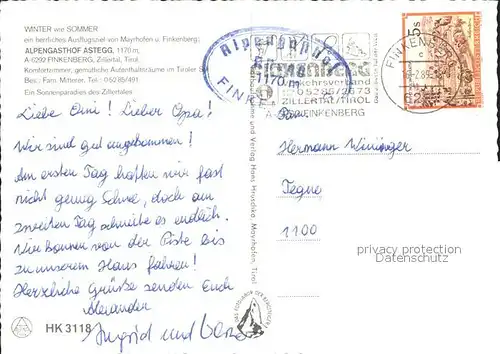 WINTER wie SOMMER
ein herrliches Ausflugsziel von Mayrhofen u. Finkenberg:
ALPENGASTHOF ASTEGG, 1170 m,
A-6292 FINKENBERG, Zillertal, Tirol
Komfortzimmer, gemütliche Aufenthaltsräume im Tiroler
Bes.: Fam. Mitterer, Tel.: 05285/491
Ein Sonnenparadies des Zillertales
Liebe Omi! Lieber Opa!
Wir sind gut angekommen!
Am ersten Tag hatten wir fast
nicht genug Schnee, doch am
zweiten Tag schneite es endlich.
Wir können von der Piste bis
zu unserem Haus fahren!
Herzliche Grüße senden Euch
Alexander
Ingrid und
HK 3118
Alpengasthof
1170 m
FINK
Finkenberg
Verkehrsverband
05285/2673
ZILLERTAL/TIROL
FINKENBERG
und Verlag Hans Hruschka, Mayrhofen, Tirol
5s
FINKENB
Fam.
Hermann
1100
privacy protection
Datenschutz